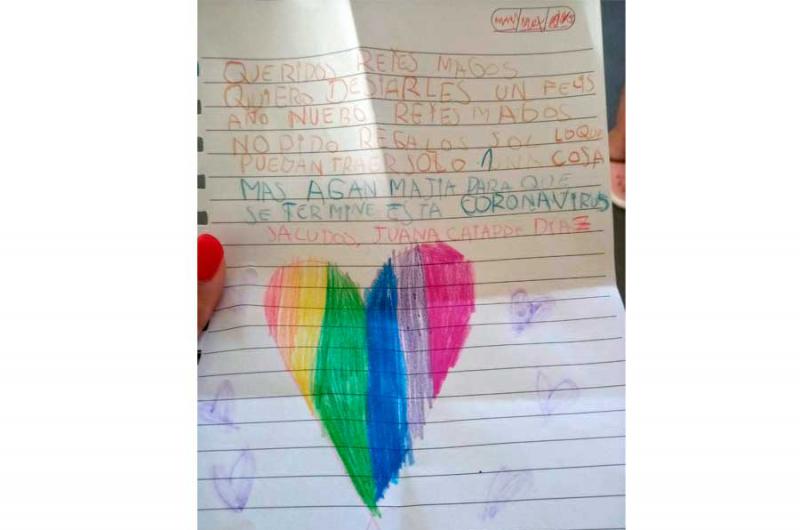 QUERIDOS REYES MAGOS
QUIERO DESIARLES UN FELIS
AÑO NUEBO REYES MAGOS
NO PIDO REGALOS SOL LOQUE
PUEDAN TRAER SOLO 1 UNA COSA
MAS AGAN MAJIA PARA QUE
SE TERMINE ESTA CORONAVIRUS
SALUDOS, JUANA CATARDO DIAZ